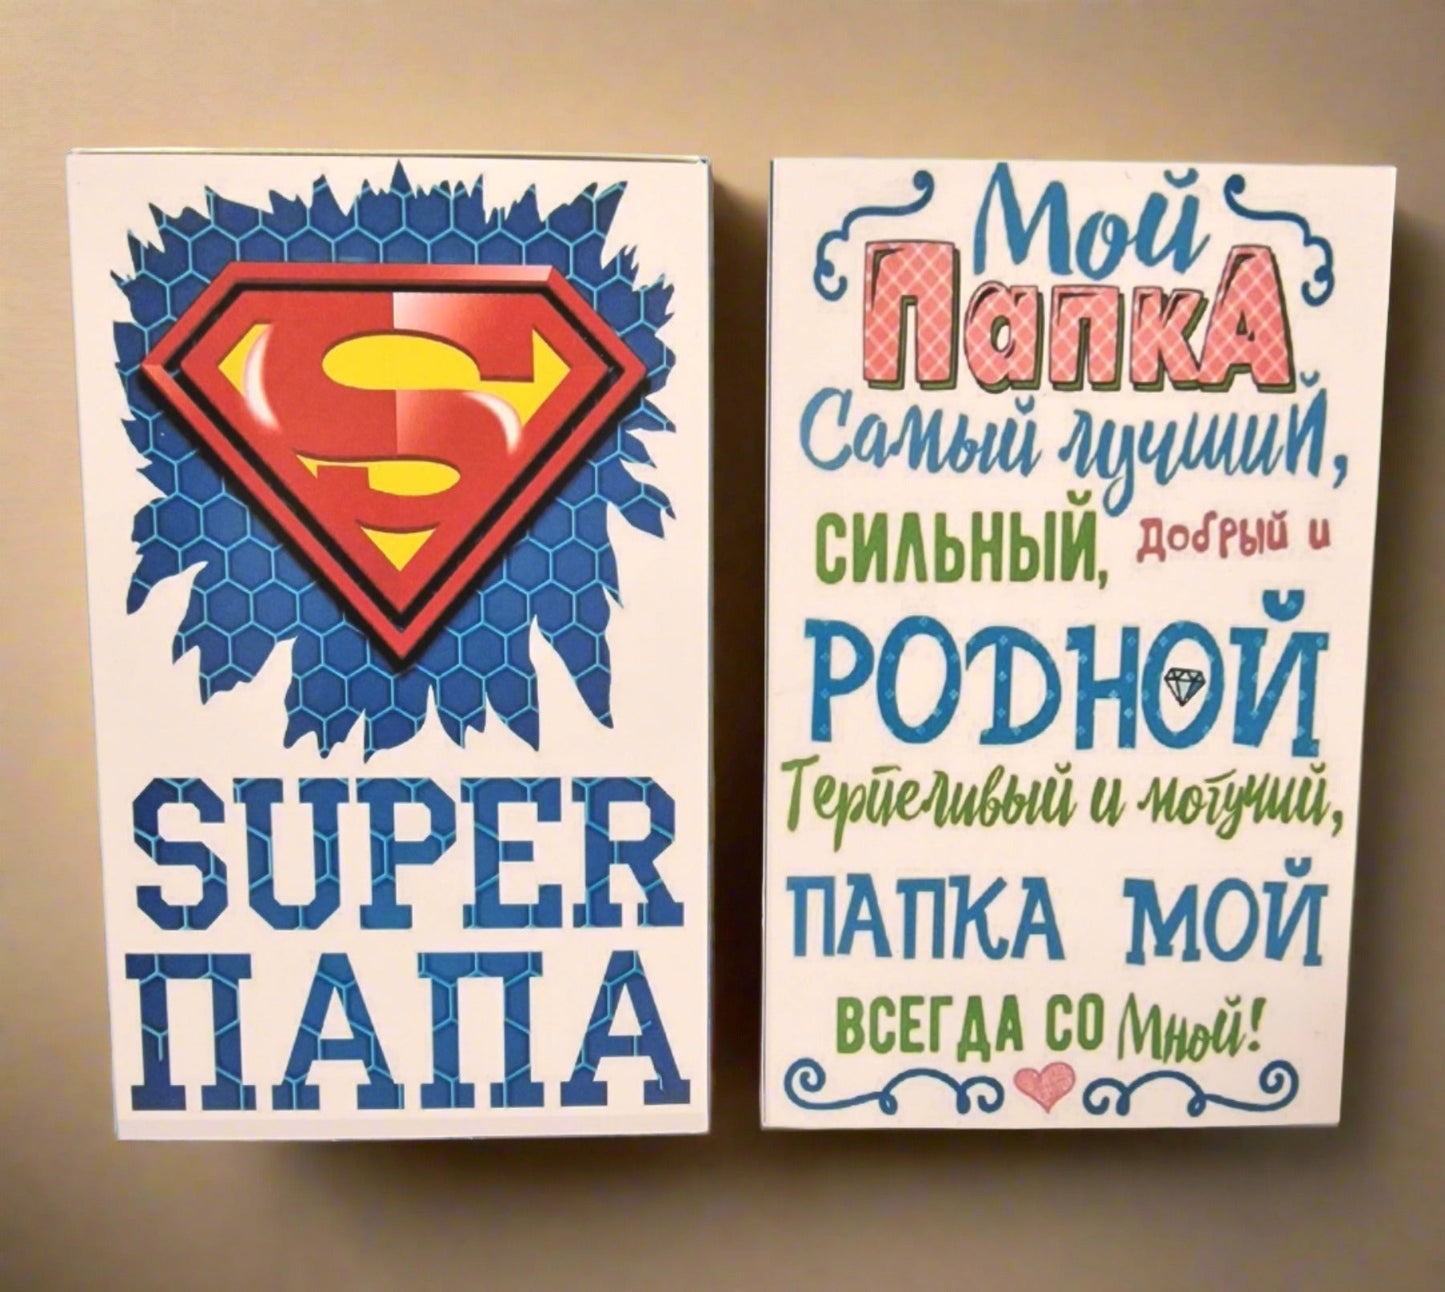 S
SUPER
ПАПА
Мой
ПапкА
Самый лучший,
СИЛЬНЫЙ, добрый и
РОДНОЙ
Терпеливый и могучий,
ПАПКА МОЙ
ВСЕГДА СО Мной!